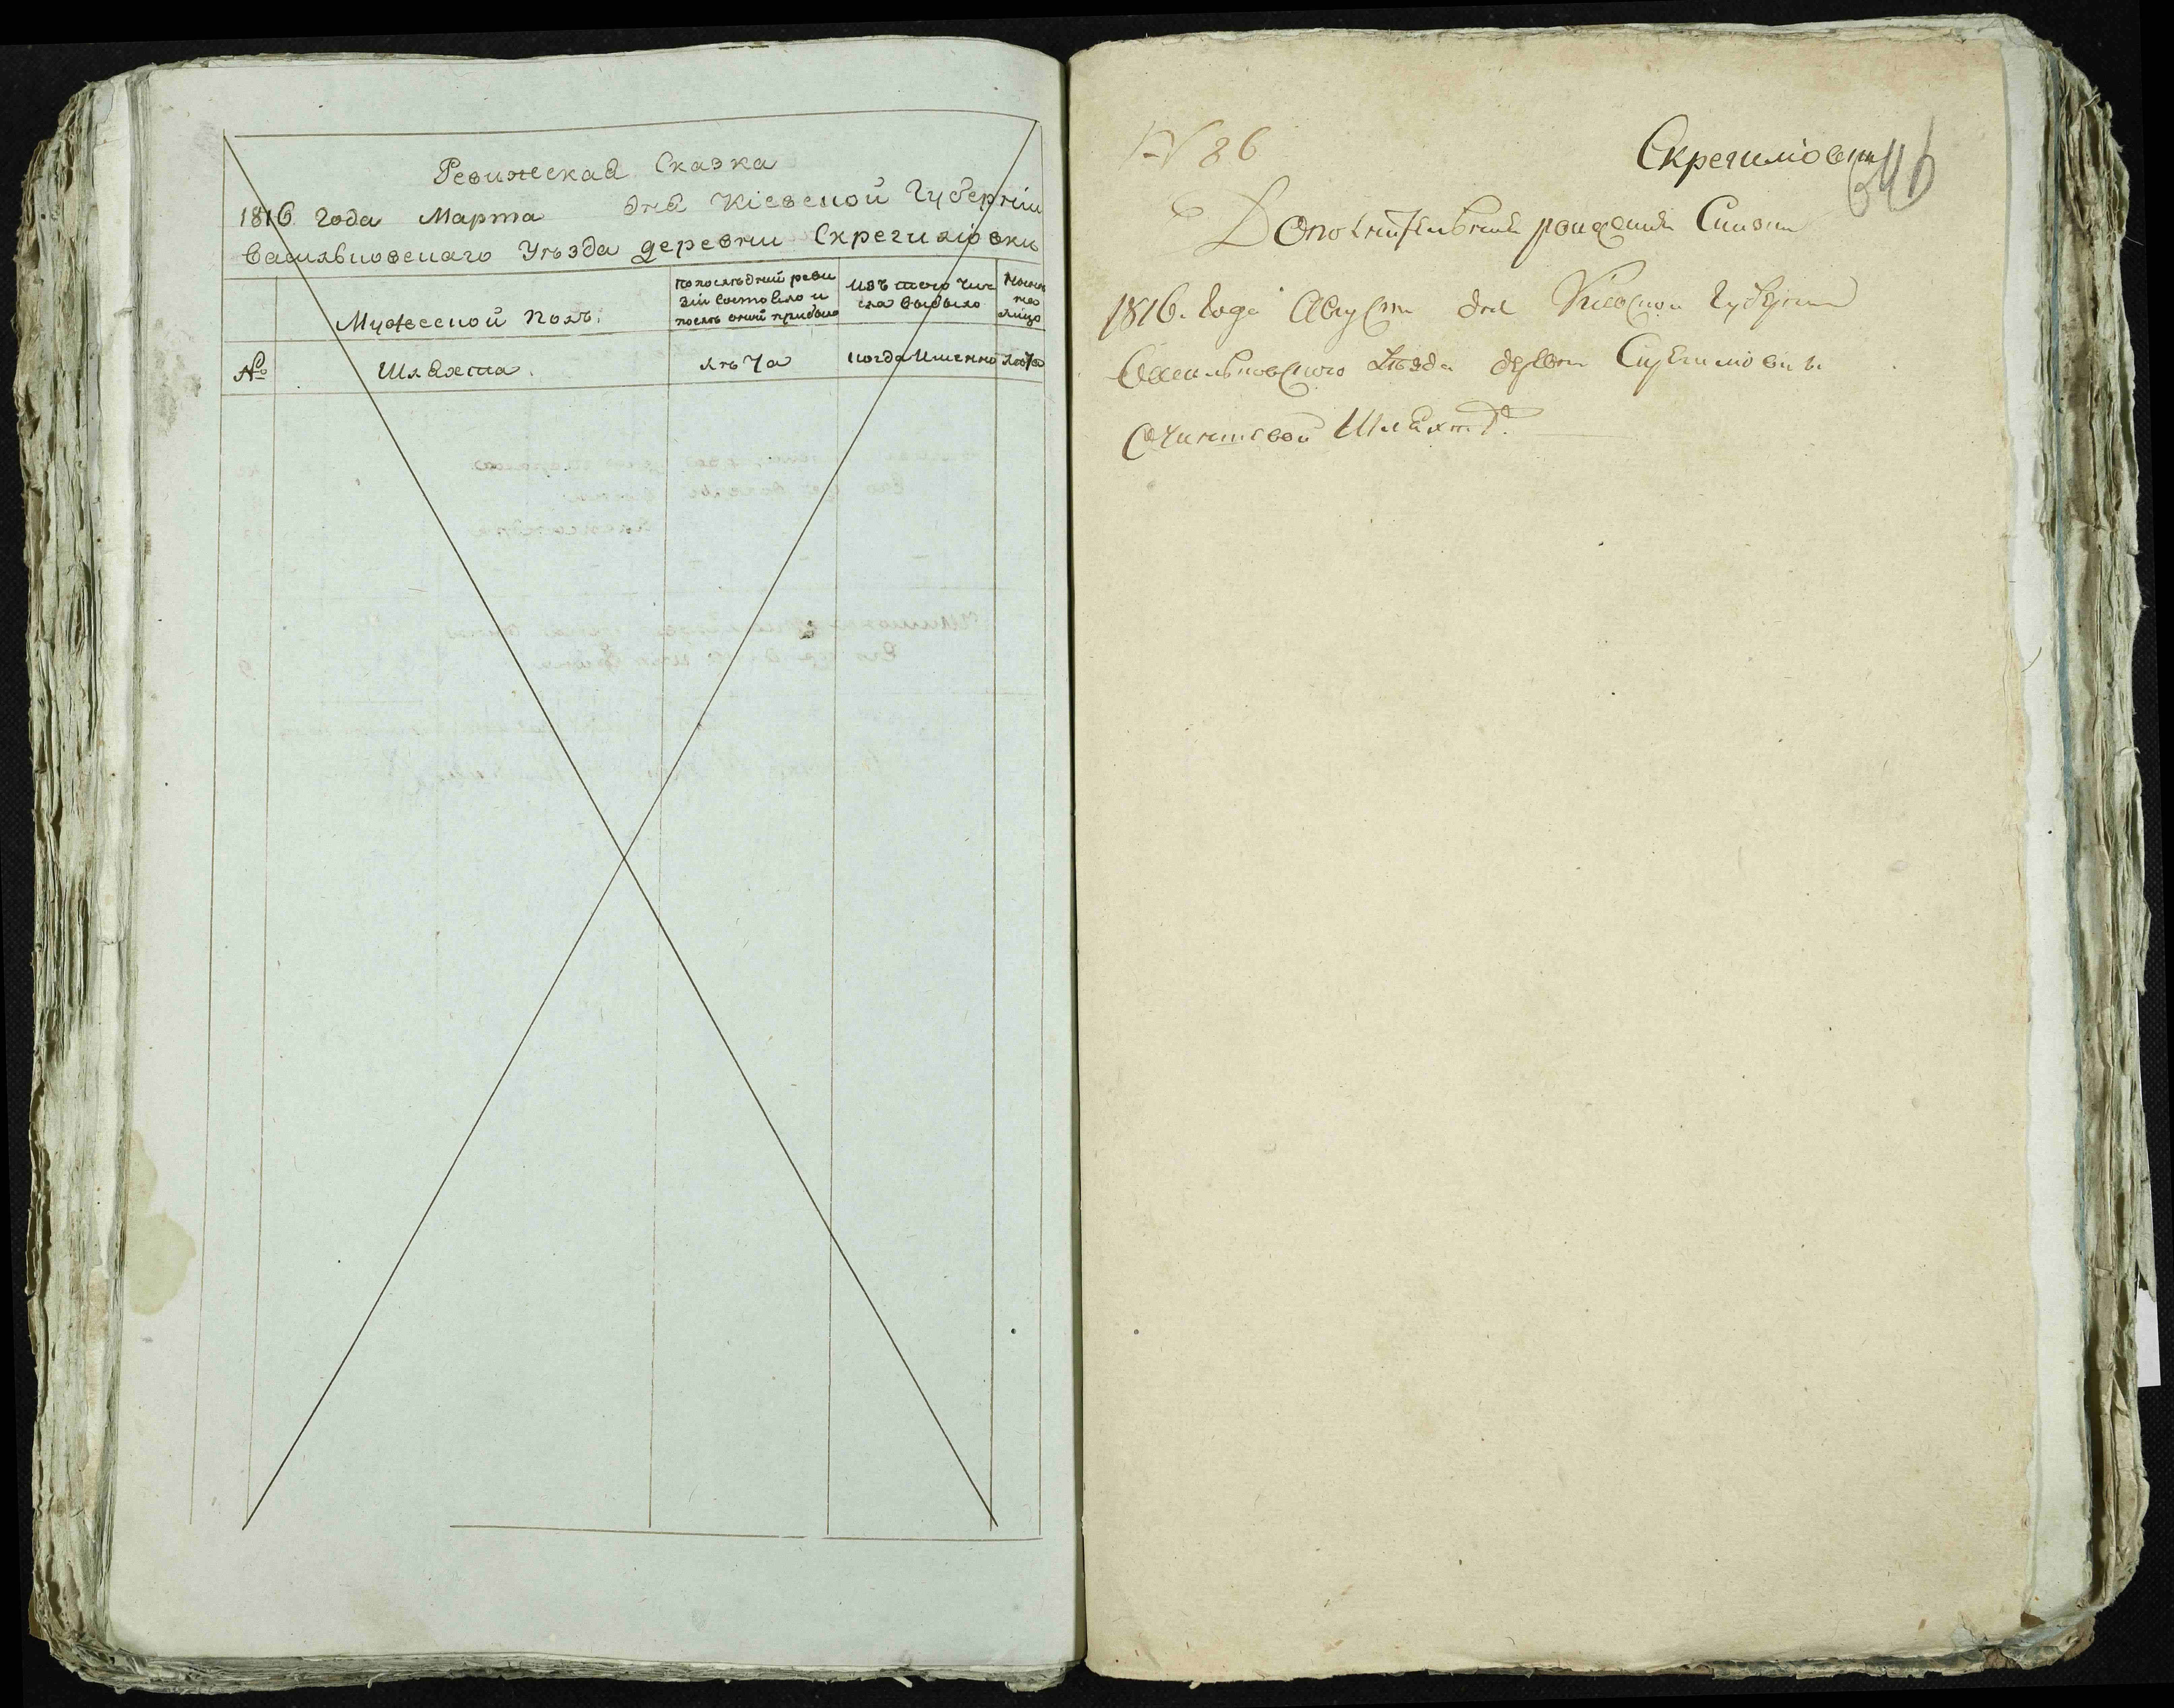 Ревижская Сказка
1816 года Марта дня Кіевской Губерніи
Васильковскаго Уѣзда деревни Скрегиловки
Мужеской полъ.
по послѣдней реви
зіи состояло и
послѣ оной прибыло
изъ того чис
ла выбыло
Ныне
на
лицо
№
Шляхта.
лѣта
когда именно
лѣта
№ 86
Скрегиловки
246
Дополнительная Скаски
1816. года Августа дня Кіевской Губерніи
Васильковского Уѣзда деревни Скрегиловки
О Чиншевой Шляхтѣ.